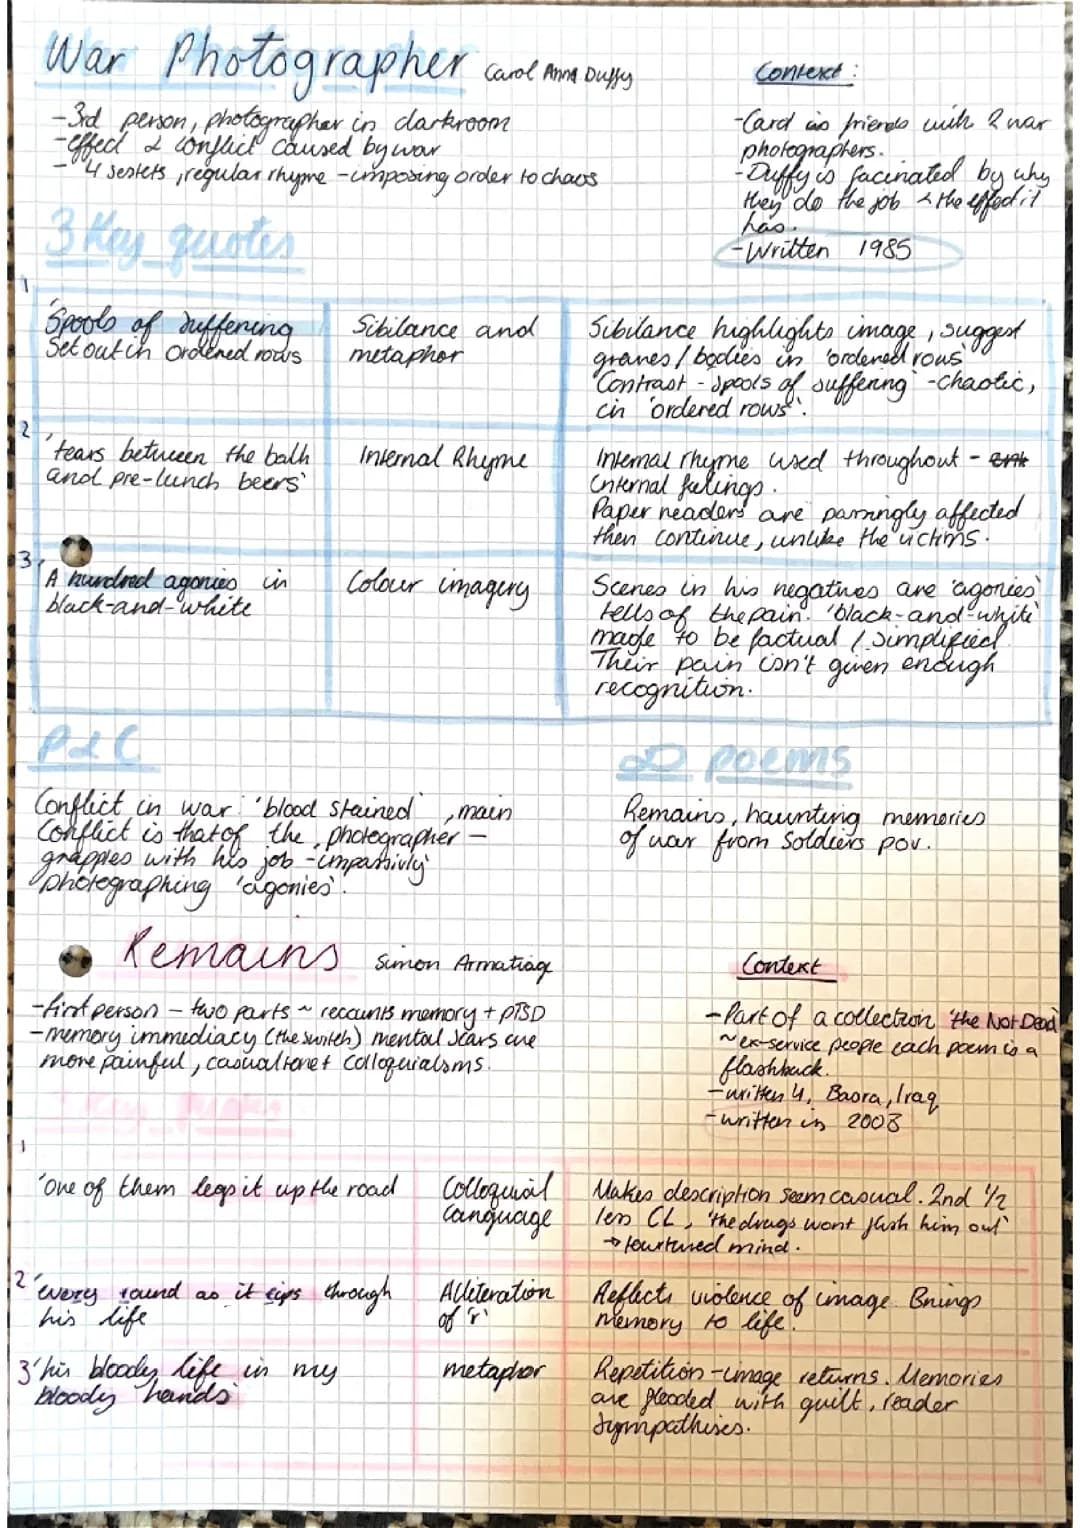 War Photographer Carol Anna Duffy
-3rd person, photographer in darkroom
-effect & conflict caused by war
- 4 sestets, regular rhyme - imposing order to chaos
Context:
-Carol is friends with 2 war
photographers.
-Duffy is facinated by why
they do the job & the effect it
has.
-Written 1985
3 Key quotes
1
'Spools of suffering
Set out in ordered rows
Sibilance and
metaphor
Sibilance highlights image, suggest
graves/bodies in 'ordered rows'
Contrast - 'spools of suffering' - chaotic,
in 'ordered rows'.
2
'tears between the bath
and pre-lunch beers'
Internal Rhyme
Internal rhyme used throughout -
internal feelings.
Paper readers are passingly affected
then continue, unlike the victims.
3
'A hundred agonies in
black-and-white
Colour imagery
Scenes in his negatives are 'agonies'
tells of the pain. 'black-and-white'
made to be factual / simplified.
Their pain isn't given enough
recognition.
P&C
Conflict in war: 'blood stained', main
Conflict is that of the photographer -
grapples with his job - impassivly
photographing 'agonies'.
∞ poems
Remains, haunting memories
of war from Soldiers pov.
Remains Simon Armatiage
-first person - two parts ~ recounts memory + PTSD
-memory immediacy (the switch) mental scars are
more painful, casual tone & colloquialsms.
Context
-Part of a collection 'the Not Dead'
~ex-service people each poem is a
flashback.
-written 4, Basra, Iraq
-written in 2008
Key quotes
1
'one of them legs it up the road
Colloquial
Language
Makes description seem casual. 2nd 1/2
less CL, 'the drugs wont flush him out'
→ tourtured mind.
2
'every round as it rips through
his life
Alliteration
of 'r'
Reflects violence of image. Brings
memory to life.
3 'his bloody life in my
bloody hands'
metaphor
Repetition - image returns. Memories
are flooded with guilt, reader
sympathises.